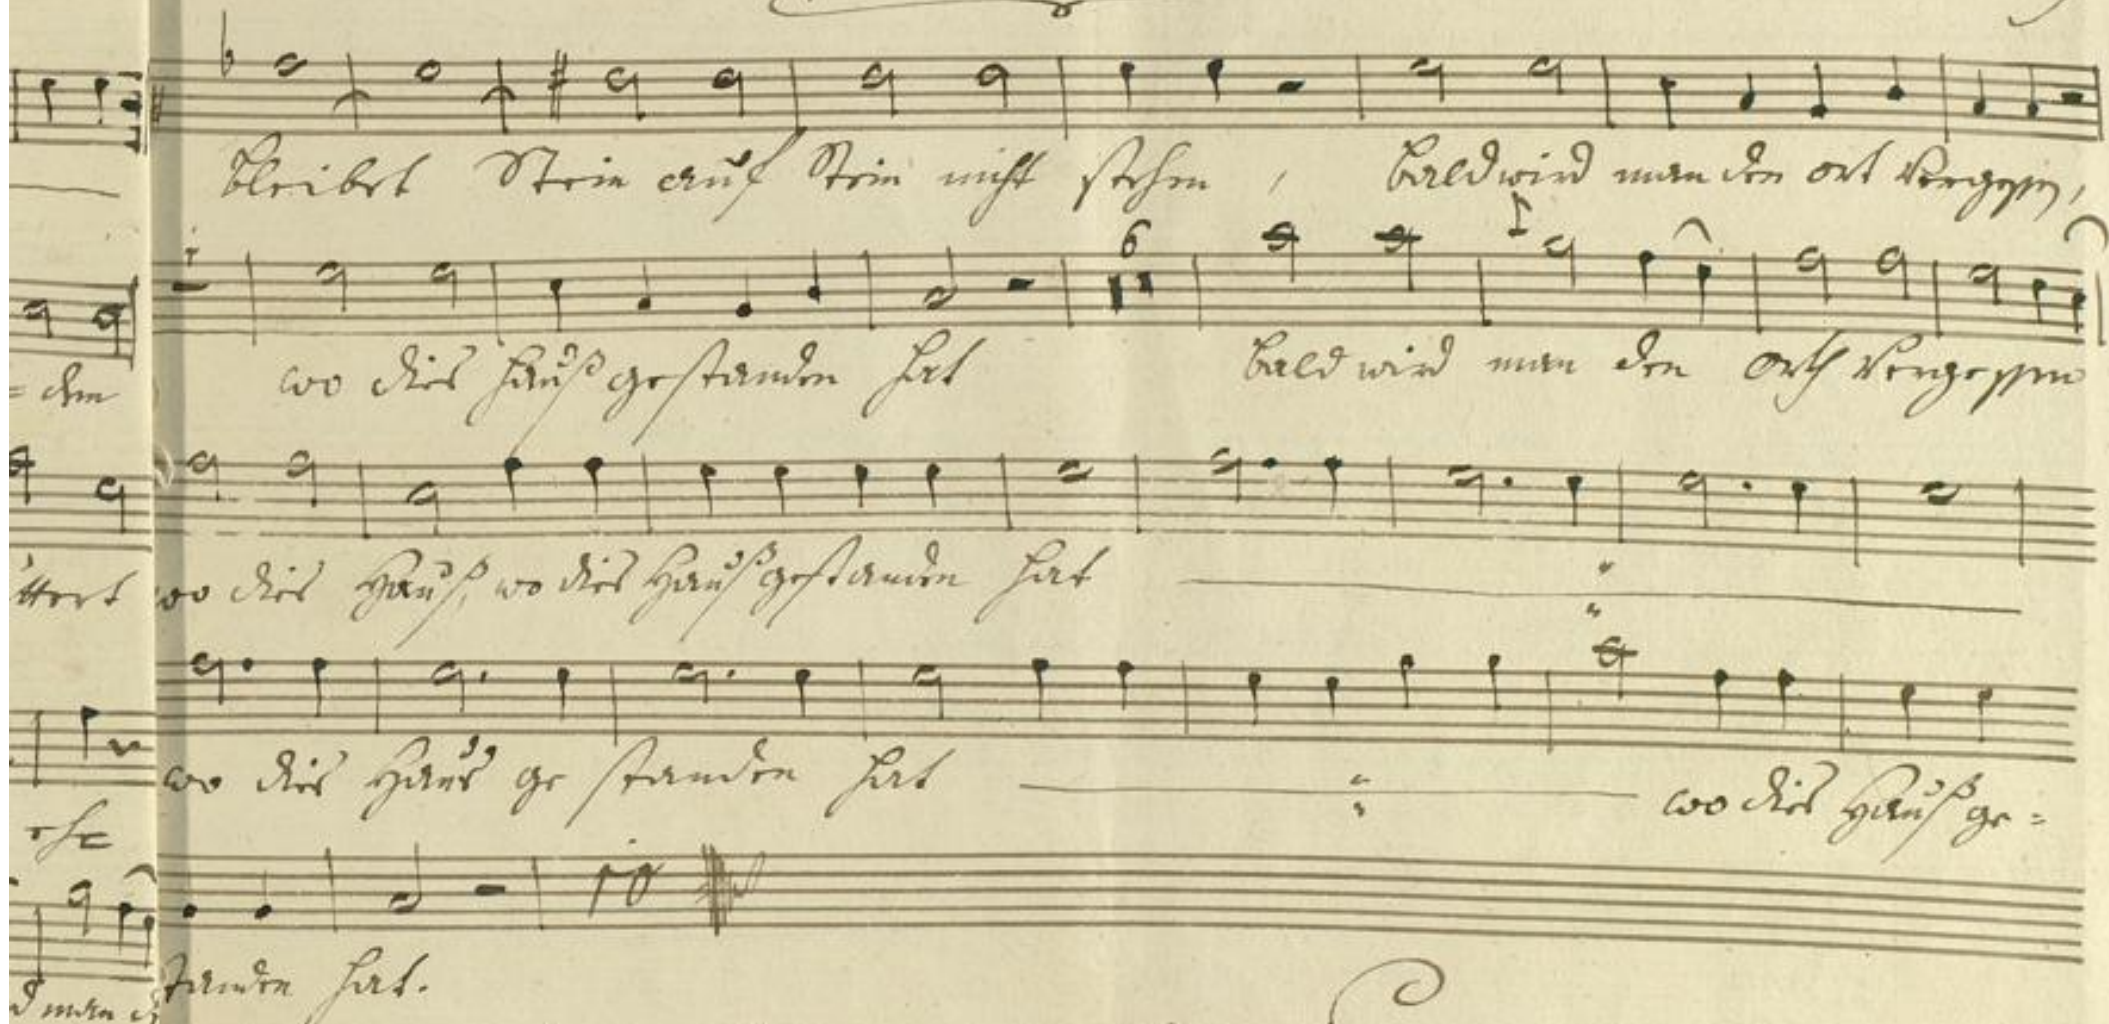 bleibet Stein auf Stein nicht stehen, bald wird man den ort vergessen,
6
= dem wo dies Hauß gestanden hat bald wird man den Orth vergessen
ttert wo dies Hauß, wo dies Hauß gestanden hat
wo dies Haus ge standen hat wo dies Hauß ge=
ehe
10
standen hat.
d man d